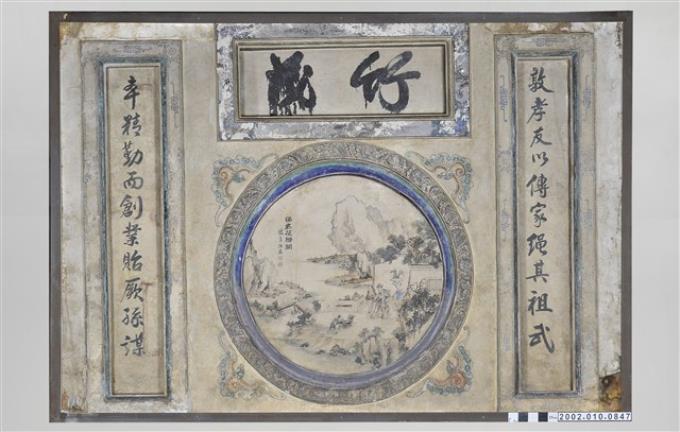 竹
敦孝友以傳家繩其祖武
本精勤而創業貽厥孫謀
2002.010.0847